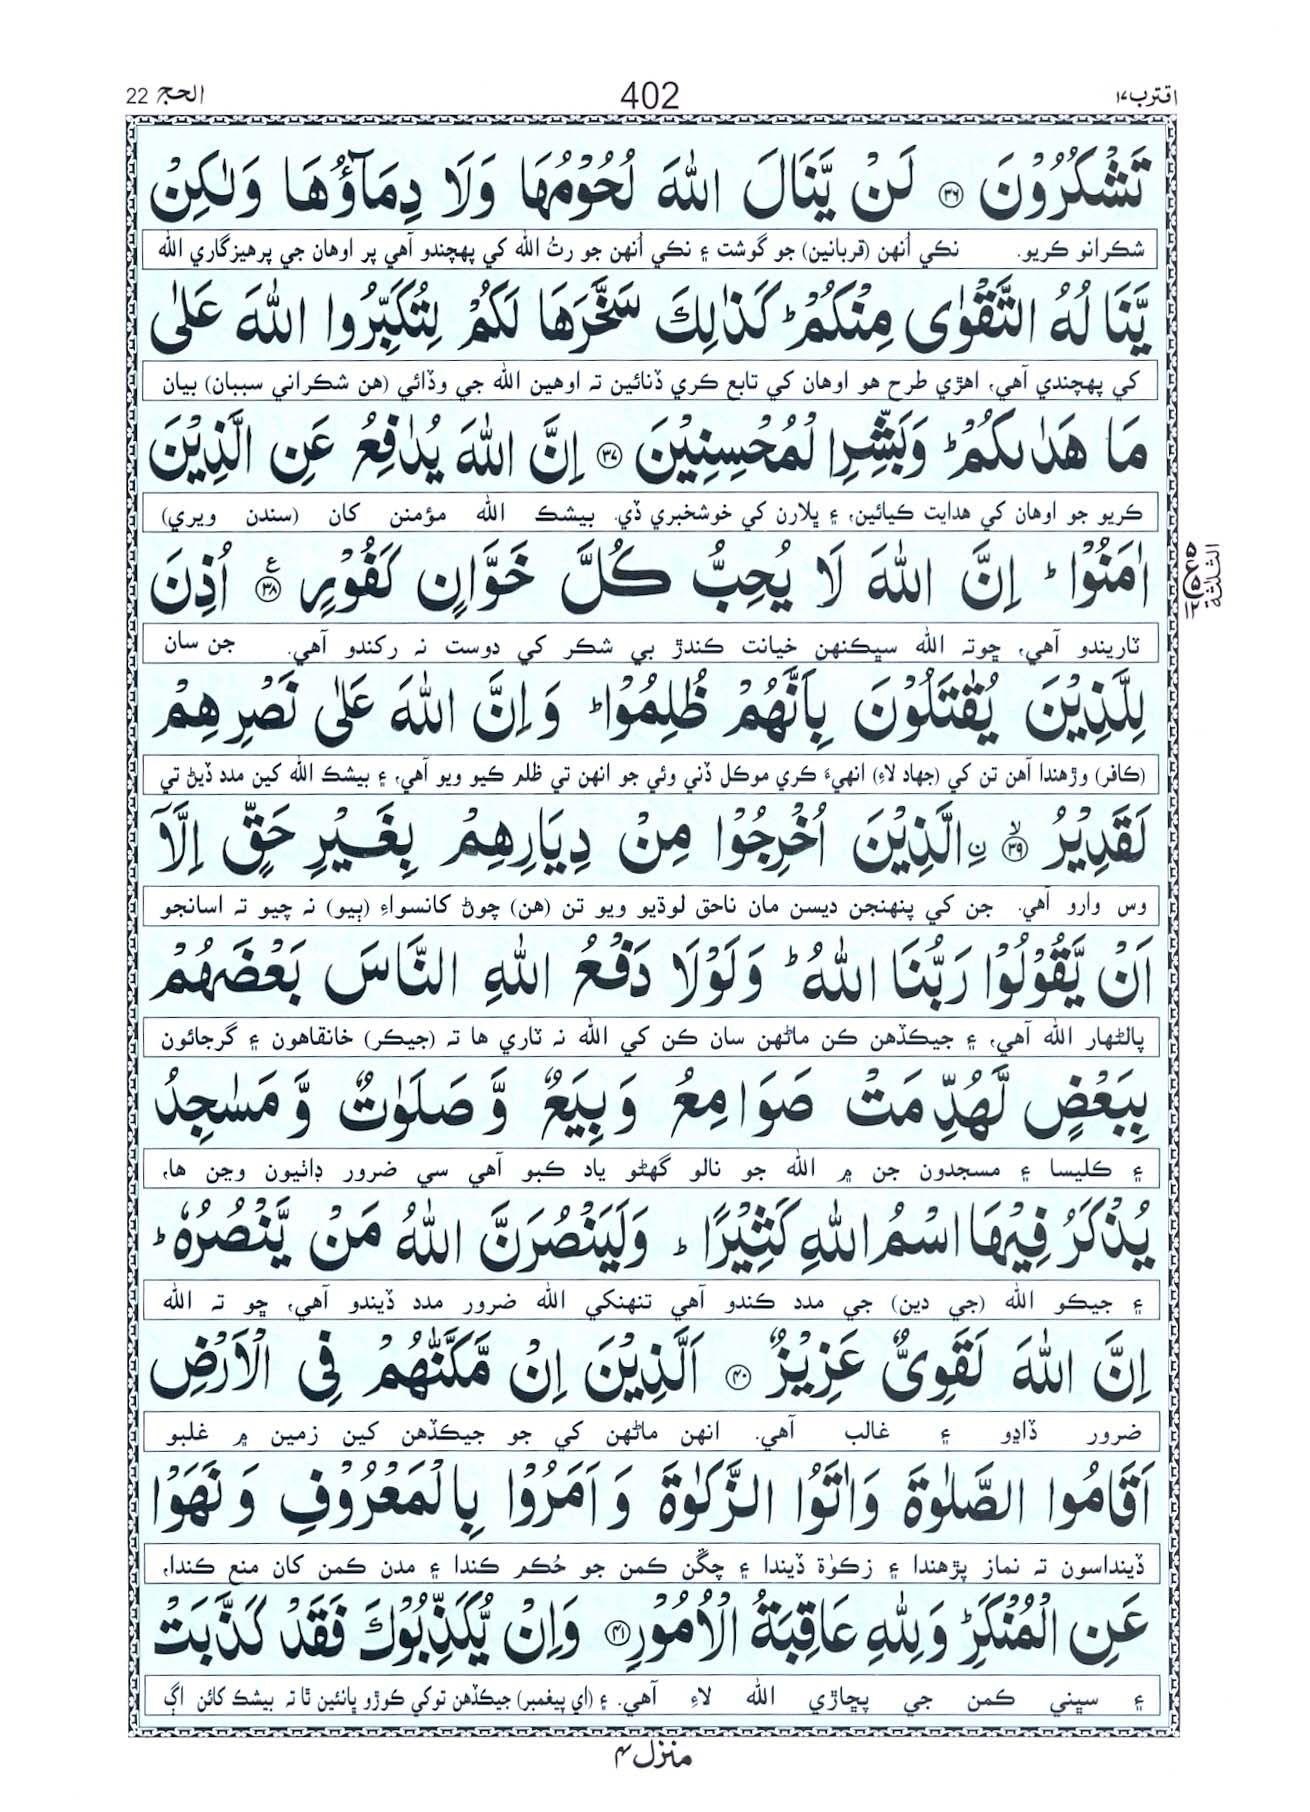 الحج 22
402
اقترب ١٧
تَشْكُرُوْنَ ﴿٣٦﴾ لَنْ يَّنَالَ اللّٰهَ لُحُوْمُهَا وَلَا دِمَآؤُهَا وَلٰكِنْ
شڪرانو ڪريو. نڪي اُنهن (قربانين) جو گوشت ۽ نڪي اُنهن جو رتُ الله کي پهچندو آهي پر اوهان جي پرهيزگاري الله
يَّنَالُهُ التَّقْوٰى مِنْكُمْ ؕ كَذٰلِكَ سَخَّرَهَا لَكُمْ لِتُكَبِّرُوا اللّٰهَ عَلٰى
کي پهچندي آهي، اهڙي طرح هو اوهان کي تابع ڪري ڏنائين ته اوهين الله جي وڏائي (هن شڪراني سببان) بيان
مَا هَدٰىكُمْ ؕ وَبَشِّرِ الْمُحْسِنِيْنَ ﴿٣٧﴾ اِنَّ اللّٰهَ يُدٰفِعُ عَنِ الَّذِيْنَ
ڪريو جو اوهان کي هدايت ڪيائين، ۽ ڀلارن کي خوشخبري ڏي. بيشڪ الله مؤمنن کان (سندن ويري)
اٰمَنُوْا ؕ اِنَّ اللّٰهَ لَا يُحِبُّ كُلَّ خَوَّانٍ كَفُوْرٍ ﴿٣٨﴾ ع اُذِنَ
ٽاريندو آهي، ڇوته الله سڀڪنهن خيانت ڪندڙ بي شڪر کي دوست نه رکندو آهي. جن سان
لِلَّذِيْنَ يُقٰتَلُوْنَ بِاَنَّهُمْ ظُلِمُوْا ؕ وَاِنَّ اللّٰهَ عَلٰى نَصْرِهِمْ
(ڪافر) وڙهندا آهن تن کي (جهاد لاءِ) انهيءَ ڪري موڪل ڏني وئي جو انهن تي ظلم ڪيو ويو آهي، ۽ بيشڪ الله کين مدد ڏيڻ تي
لَقَدِيْرُ ﴿٣٩﴾ ۙ نِ الَّذِيْنَ اُخْرِجُوْا مِنْ دِيَارِهِمْ بِغَيْرِ حَقٍّ اِلَّآ
وس وارو آهي. جن کي پنهنجن ديسن مان ناحق لوڌيو ويو تن (هن) چوڻ کانسواءِ (ٻيو) نه چيو ته اسانجو
اَنْ يَّقُوْلُوْا رَبُّنَا اللّٰهُ ؕ وَلَوْلَا دَفْعُ اللّٰهِ النَّاسَ بَعْضَهُمْ
پالڻهار الله آهي، ۽ جيڪڏهن ڪن ماڻهن سان ڪن کي الله نه ٽاري ها ته (جيڪر) خانقاهون ۽ گرجائون
بِبَعْضٍ لَّهُدِّمَتْ صَوَامِعُ وَبِيَعٌ وَّصَلَوٰتٌ وَّمَسٰجِدُ
۽ ڪليسا ۽ مسجدون جن ۾ الله جو نالو گهڻو ياد ڪبو آهي سي ضرور ڊاٺيون وڃن ها،
يُذْكَرُ فِيْهَا اسْمُ اللّٰهِ كَثِيْرًا ؕ وَلَيَنْصُرَنَّ اللّٰهُ مَنْ يَّنْصُرُهٗ ؕ
۽ جيڪو الله (جي دين) جي مدد ڪندو آهي تنهنکي الله ضرور مدد ڏيندو آهي، ڇو ته الله
اِنَّ اللّٰهَ لَقَوِىٌّ عَزِيْزٌ ﴿٤٠﴾ اَلَّذِيْنَ اِنْ مَّكَّنّٰهُمْ فِى الْاَرْضِ
ضرور ڏاڍو ۽ غالب آهي. انهن ماڻهن کي جو جيڪڏهن کين زمين ۾ غلبو
اَقَامُوا الصَّلٰوةَ وَاٰتَوُا الزَّكٰوةَ وَاَمَرُوْا بِالْمَعْرُوْفِ وَنَهَوْا
ڏينداسون ته نماز پڙهندا ۽ زڪوٰة ڏيندا ۽ چڱن ڪمن جو حُڪم ڪندا ۽ مدن ڪمن کان منع ڪندا،
عَنِ الْمُنْكَرِ ؕ وَلِلّٰهِ عَاقِبَةُ الْاُمُوْرِ ﴿٤١﴾ وَاِنْ يُّكَذِّبُوْكَ فَقَدْ كَذَّبَتْ
۽ سڀني ڪمن جي پڇاڙي الله لاءِ آهي. ۽ (اي پيغمبر) جيڪڏهن توکي ڪوڙو ڀانئين ٿا ته بيشڪ کائن اڳ
منزل ٤